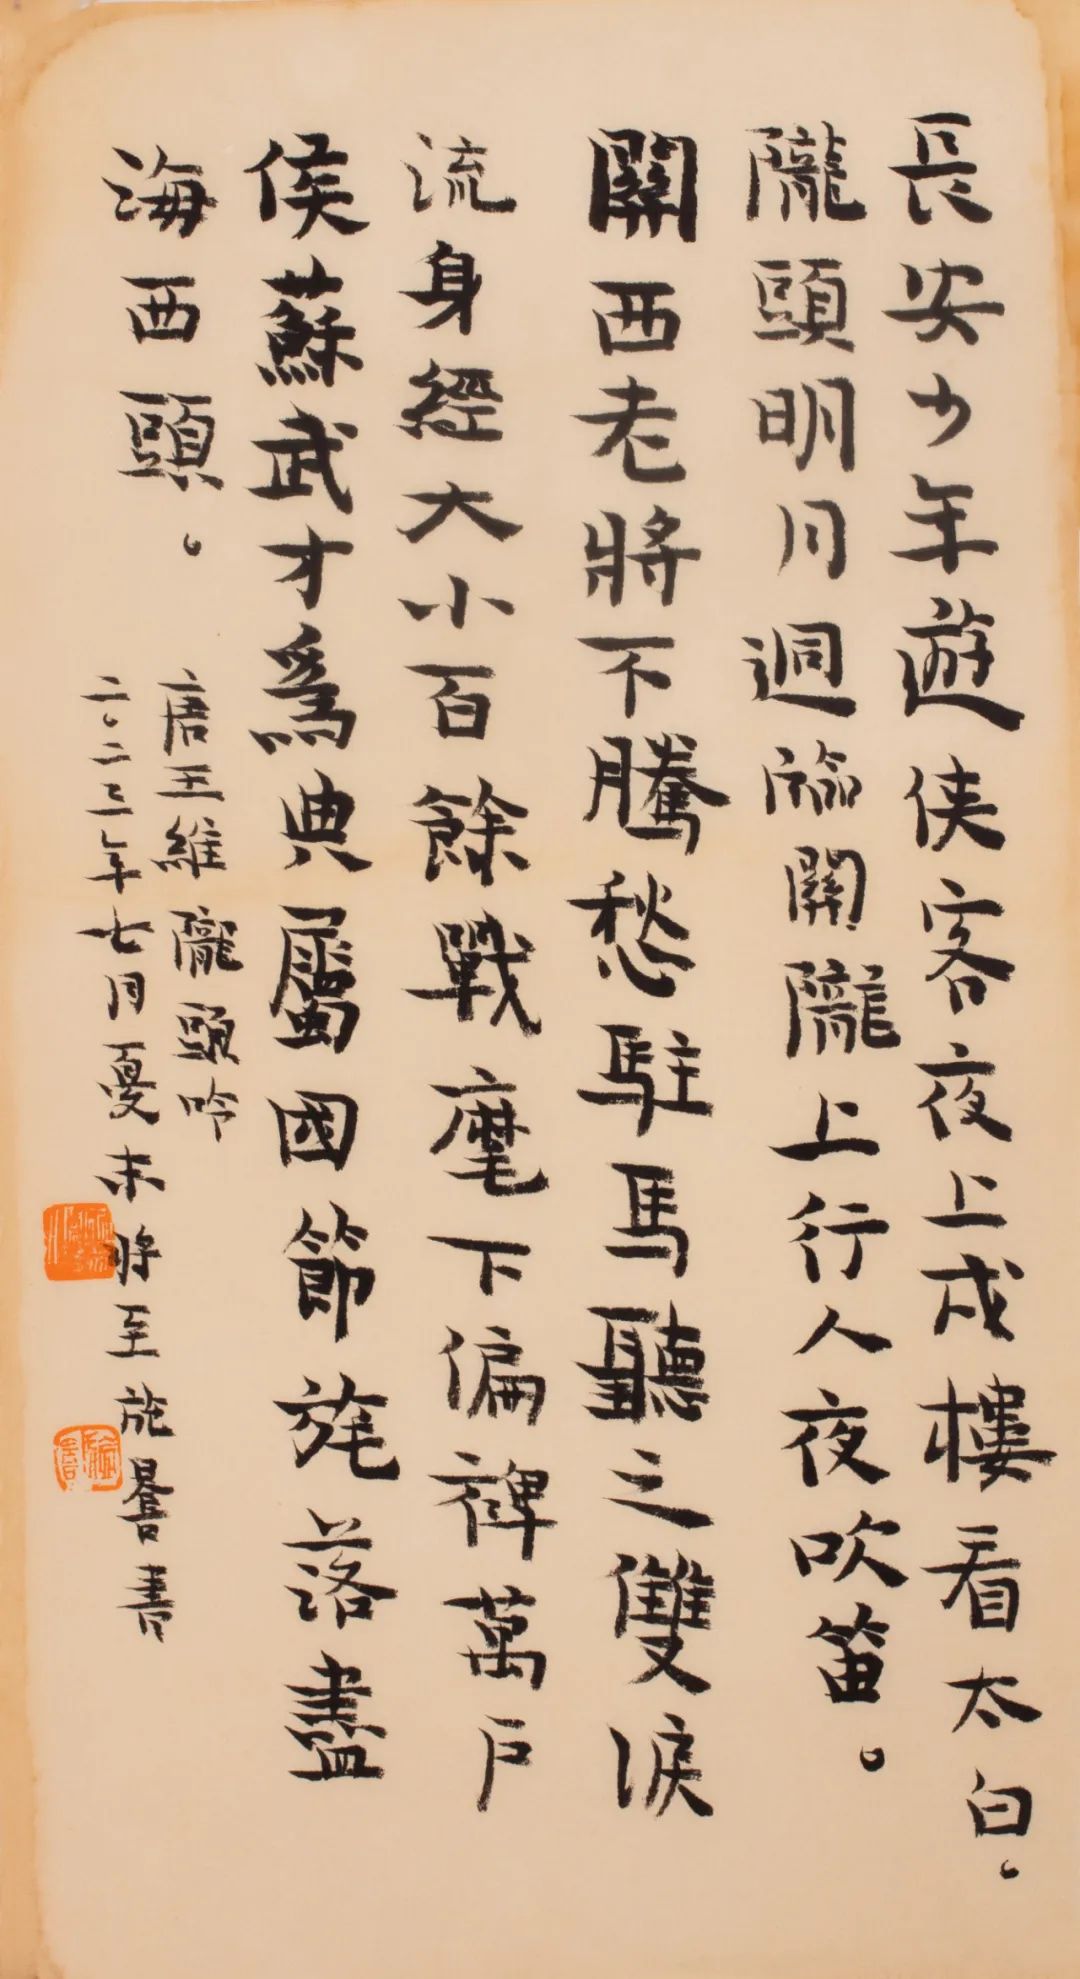 長安少年遊俠客夜上戍樓看太白。
隴頭明月迥臨關隴上行人夜吹笛。
關西老將不勝愁駐馬聽之雙淚
流身經大小百餘戰麾下偏裨萬戶
侯蘇武才為典屬國節旄落盡
海西頭。
唐王維隴頭吟
二〇二三年七月夏末將至施書